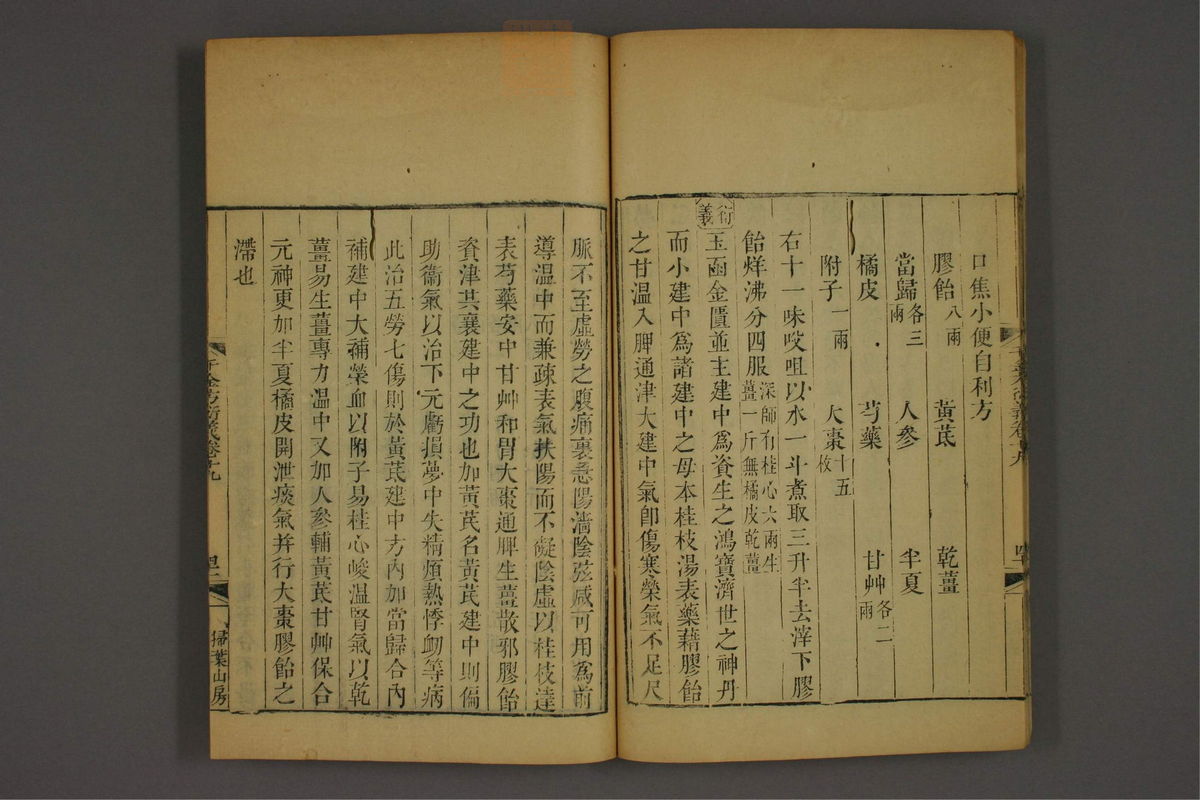 口焦小便自利方
膠飴八兩　黃芪　乾薑
當歸各三兩　人參　半夏
橘皮　芍藥　甘艸各二兩
附子一兩　大棗十五枚
右十一味㕮咀以水一斗煮取三升半去滓下膠
飴烊沸分四服深師有桂心六兩生薑一斤無橘皮乾薑
衍義
玉函金匱並主建中爲資生之鴻寶濟世之神丹
而小建中爲諸建中之母本桂枝湯表藥藉膠飴
之甘溫入脾通津大建中氣卽傷寒榮氣不足尺
脈不至虛勞之腹痛裏急陽濇陰弦咸可用為前
導溫中而兼疎表氣扶陽而不礙陰虛以桂枝達
表芍藥安中甘艸和胃大棗通脾生薑散邪膠飴
資津共襄建中之功也加黃芪名黃芪建中則偏
助衞氣以治下元虧損夢中失精煩熱悸衄等病
此治五勞七傷則於黃芪建中方內加當歸合內
補建中大補榮血以附子易桂心峻溫腎氣以乾
薑易生薑專力溫中又加人參輔黃芪甘艸保合
元神更加半夏橘皮開泄痰氣并行大棗膠飴之
滯也
千金方衍義卷十九
掃葉山房